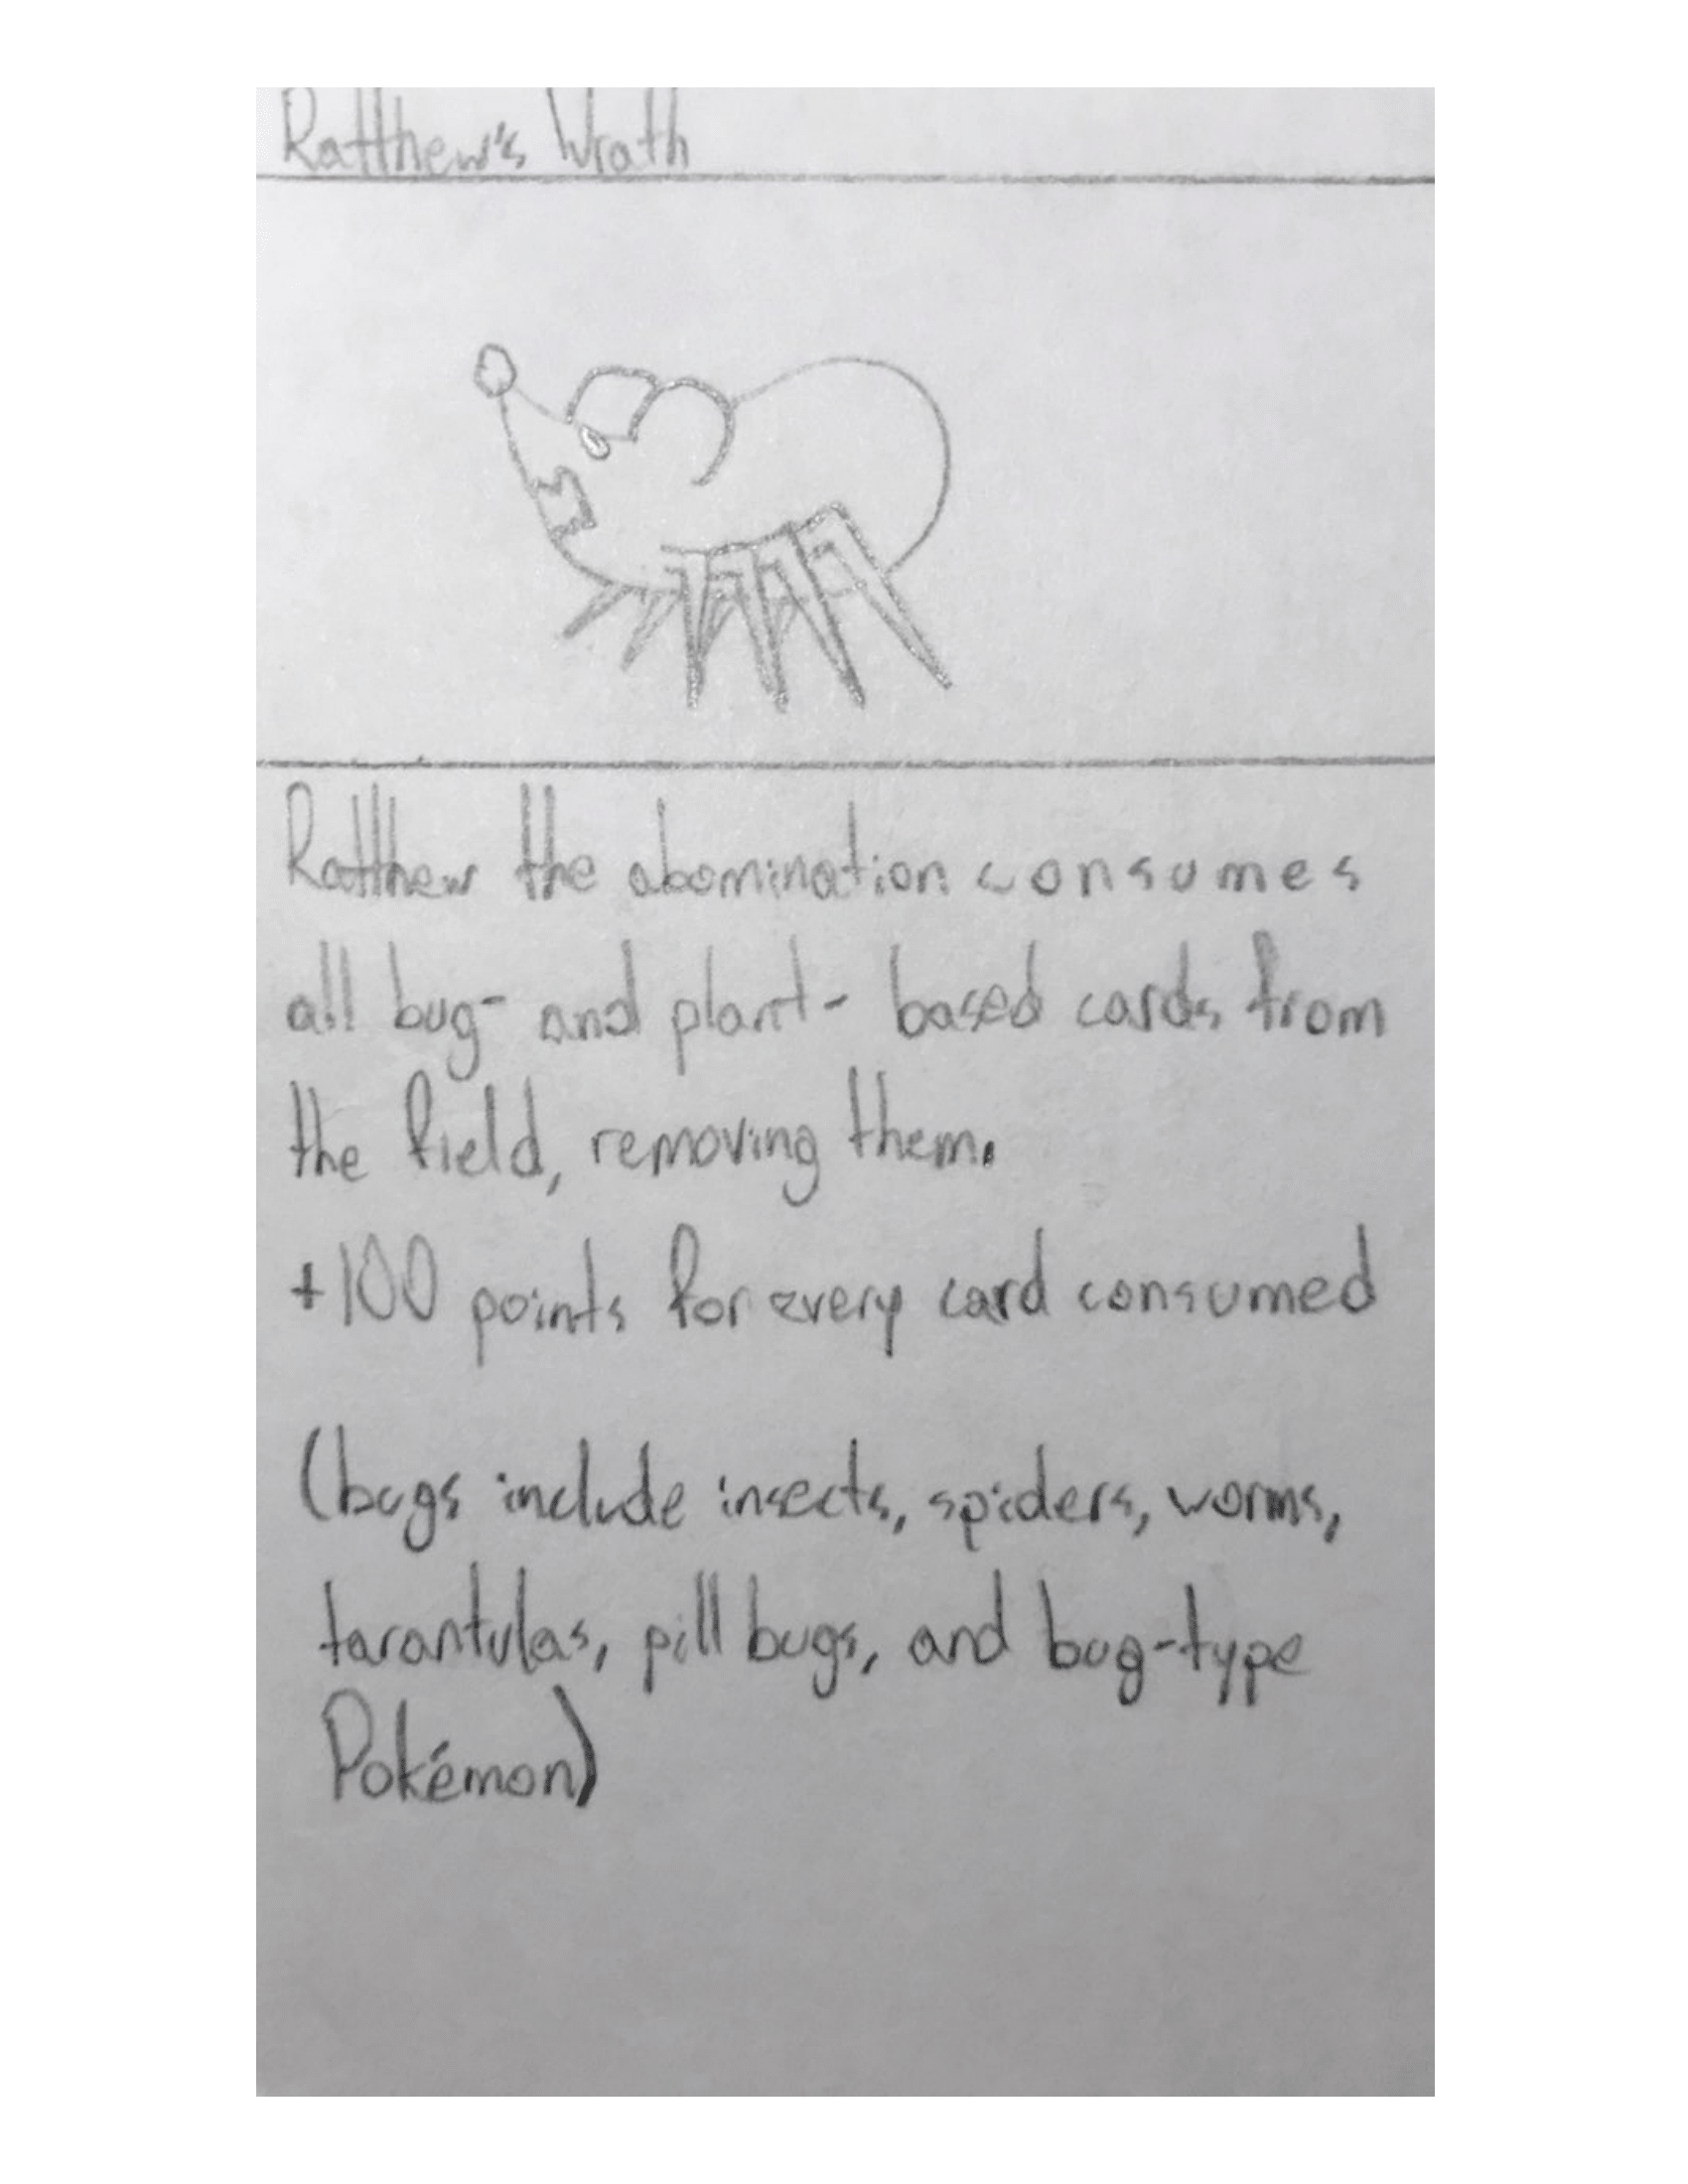 Ratthew's Wrath
Ratthew the abomination consumes
all bug- and plant- based cards from
the field, removing them.
+100 points for every card consumed
(bugs include insects, spiders, worms,
tarantulas, pill bugs, and bug-type
Pokémon)